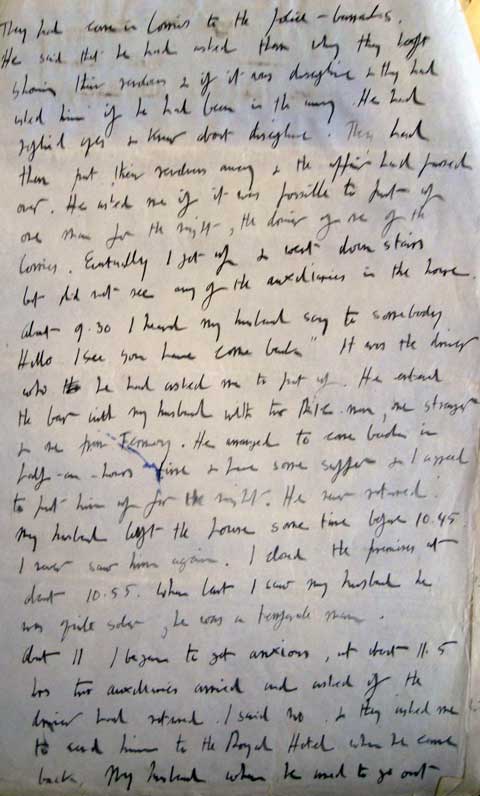 They had come in lorries to the police-barracks.
He said that he had asked them why they kept
showing their revolvers & if it was discipline & they had
asked him if he had been in the army. He had
replied yes & knew about discipline. They had
then put their revolvers away & the affair had passed
over. He asked me if it was possible to put up
one man for the night, the driver of one of the
lorries. Eventually I got up & went down stairs
but did not see any of the auxiliaries in the house.
About 9.30 I heard my husband say to somebody
Hello I see you have come back" It was the driver
who he had asked me to put up. He entered
the bar with my husband with two other men, one stranger
& one from Fermoy. He arranged to come back in
half-an-hours time & have some supper & I agreed
to put him up for the night. He never returned.
My husband left the house some time before 10.45.
I never saw him again. I closed the premises at
about 10.55. When last I saw my husband he
was quite sober, he was a temperate man.
About 11 I began to get anxious, at about 11.5
hrs two auxiliaries arrived and asked if the
driver had returned. I said no & they asked me
to send him to the Royal Hotel when he came
back. My husband when he used to go out